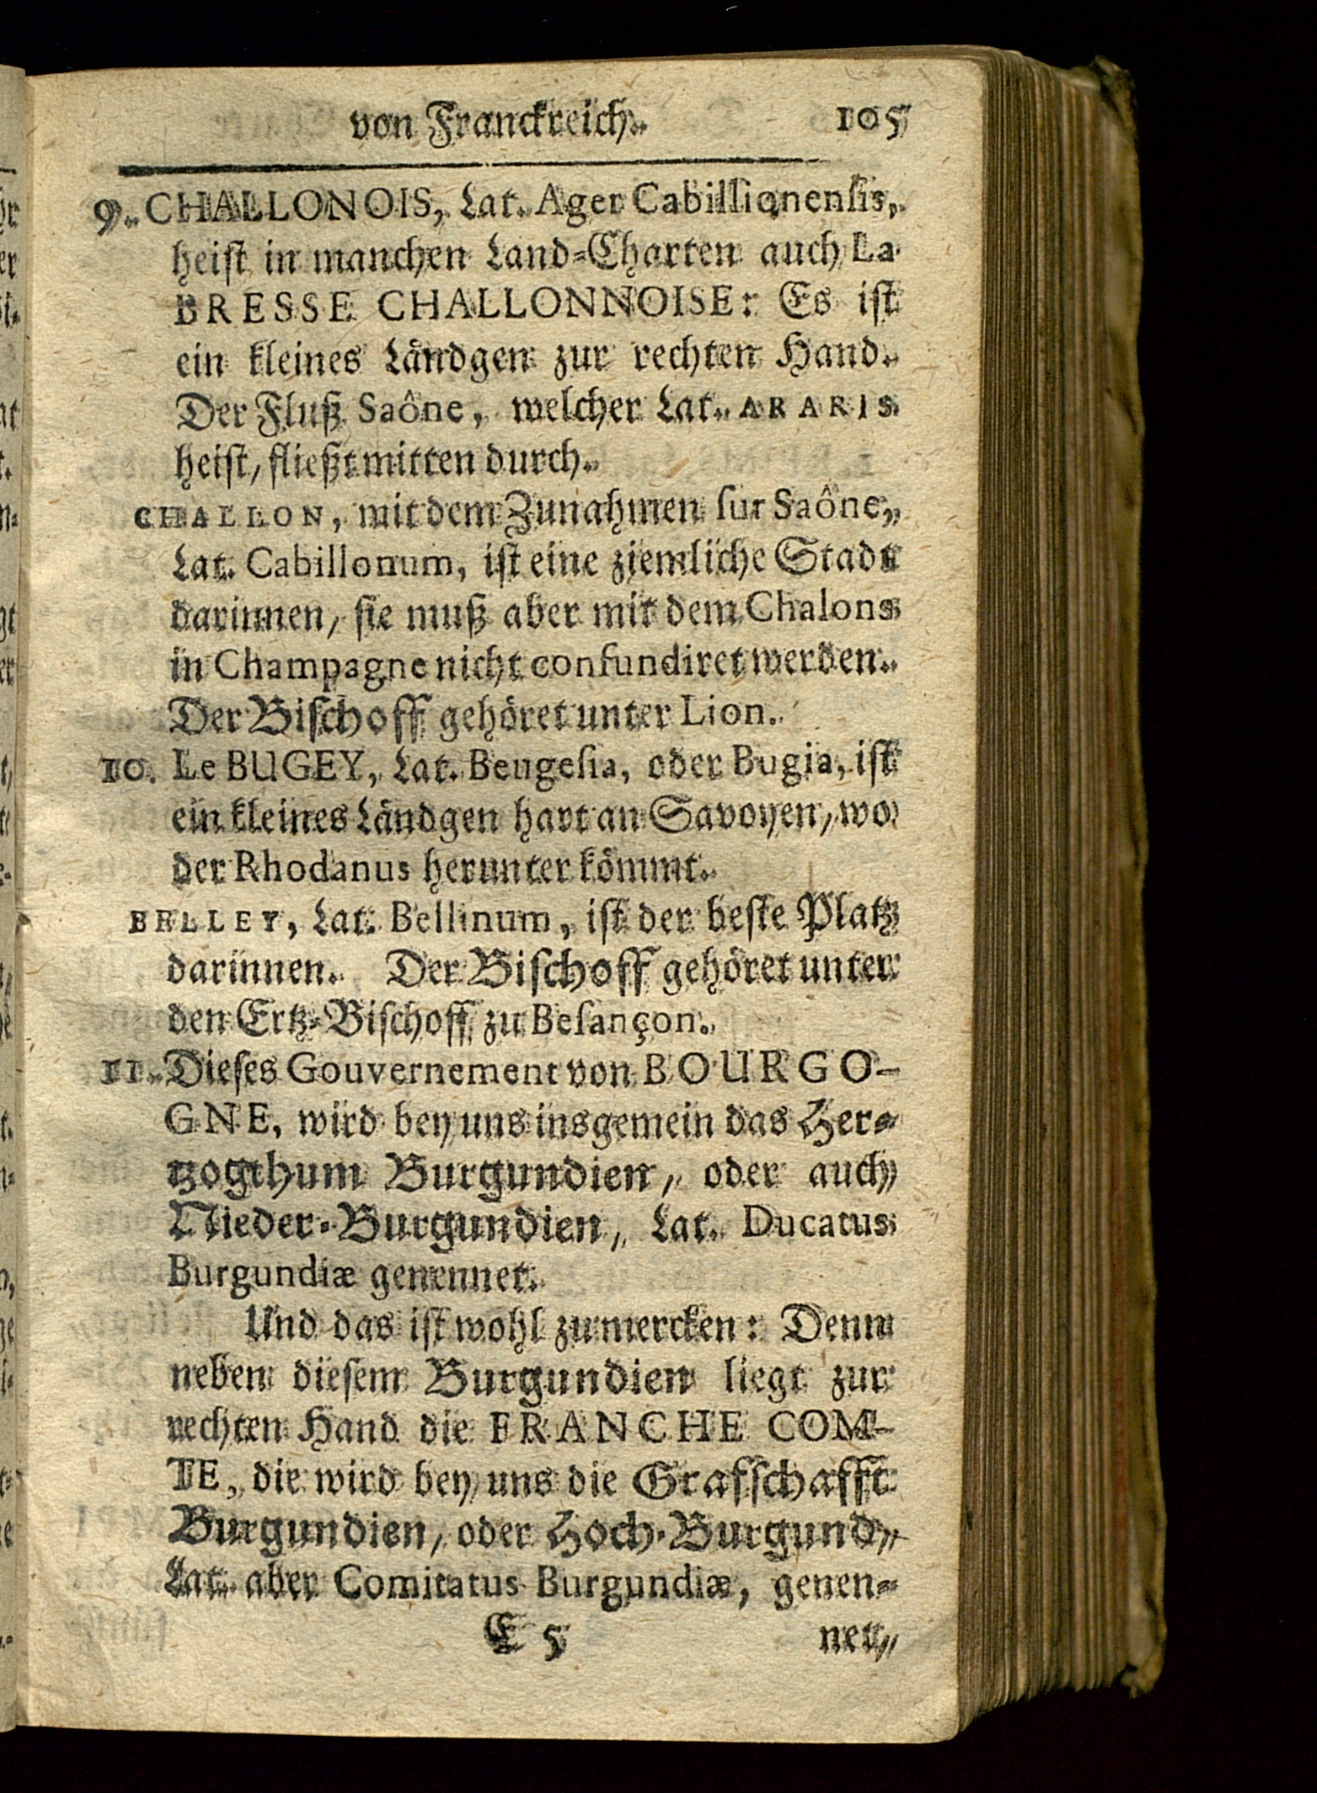 von Franckreich. 105
9. CHALLONOIS, Lat. Ager Cabillionensis,
heist in manchen Land-Charten auch La
BRESSE CHALLONNOISE: Es ist
ein kleines Ländgen zur rechten Hand.
Der Fluß Saône, welcher Lat. ARARIS
heist, fließt mitten durch.
CHALLON, mit dem Zunahmen sur Saône,
Lat. Cabillonum, ist eine ziemliche Stadt
darinnen, sie muß aber mit dem Chalons
in Champagne nicht confundiret werden.
Der Bischoff gehöret unter Lion.
10. Le BUGEY, Lat. Beugesia, oder Bugia, ist
ein kleines Ländgen hart an Savoyen, wo
der Rhodanus herunter kömmt.
BELLEY, Lat. Bellinum, ist der beste Platz
darinnen. Der Bischoff gehöret unter
den Ertz-Bischoff zu Besançon.
11. Dieses Gouvernement von BOURGO-
GNE, wird bey uns insgemein das Her-
tzogthum Burgundien, oder auch
Nieder-Burgundien, Lat. Ducatus
Burgundiæ genennet.
Und das ist wohl zu mercken: Denn
neben diesem Burgundien liegt zur
rechten Hand die FRANCHE COM-
TE, die wird bey uns die Grafschafft
Burgundien, oder Hoch-Burgund,
Lat. aber Comitatus Burgundiæ, genen-
E 5 net,